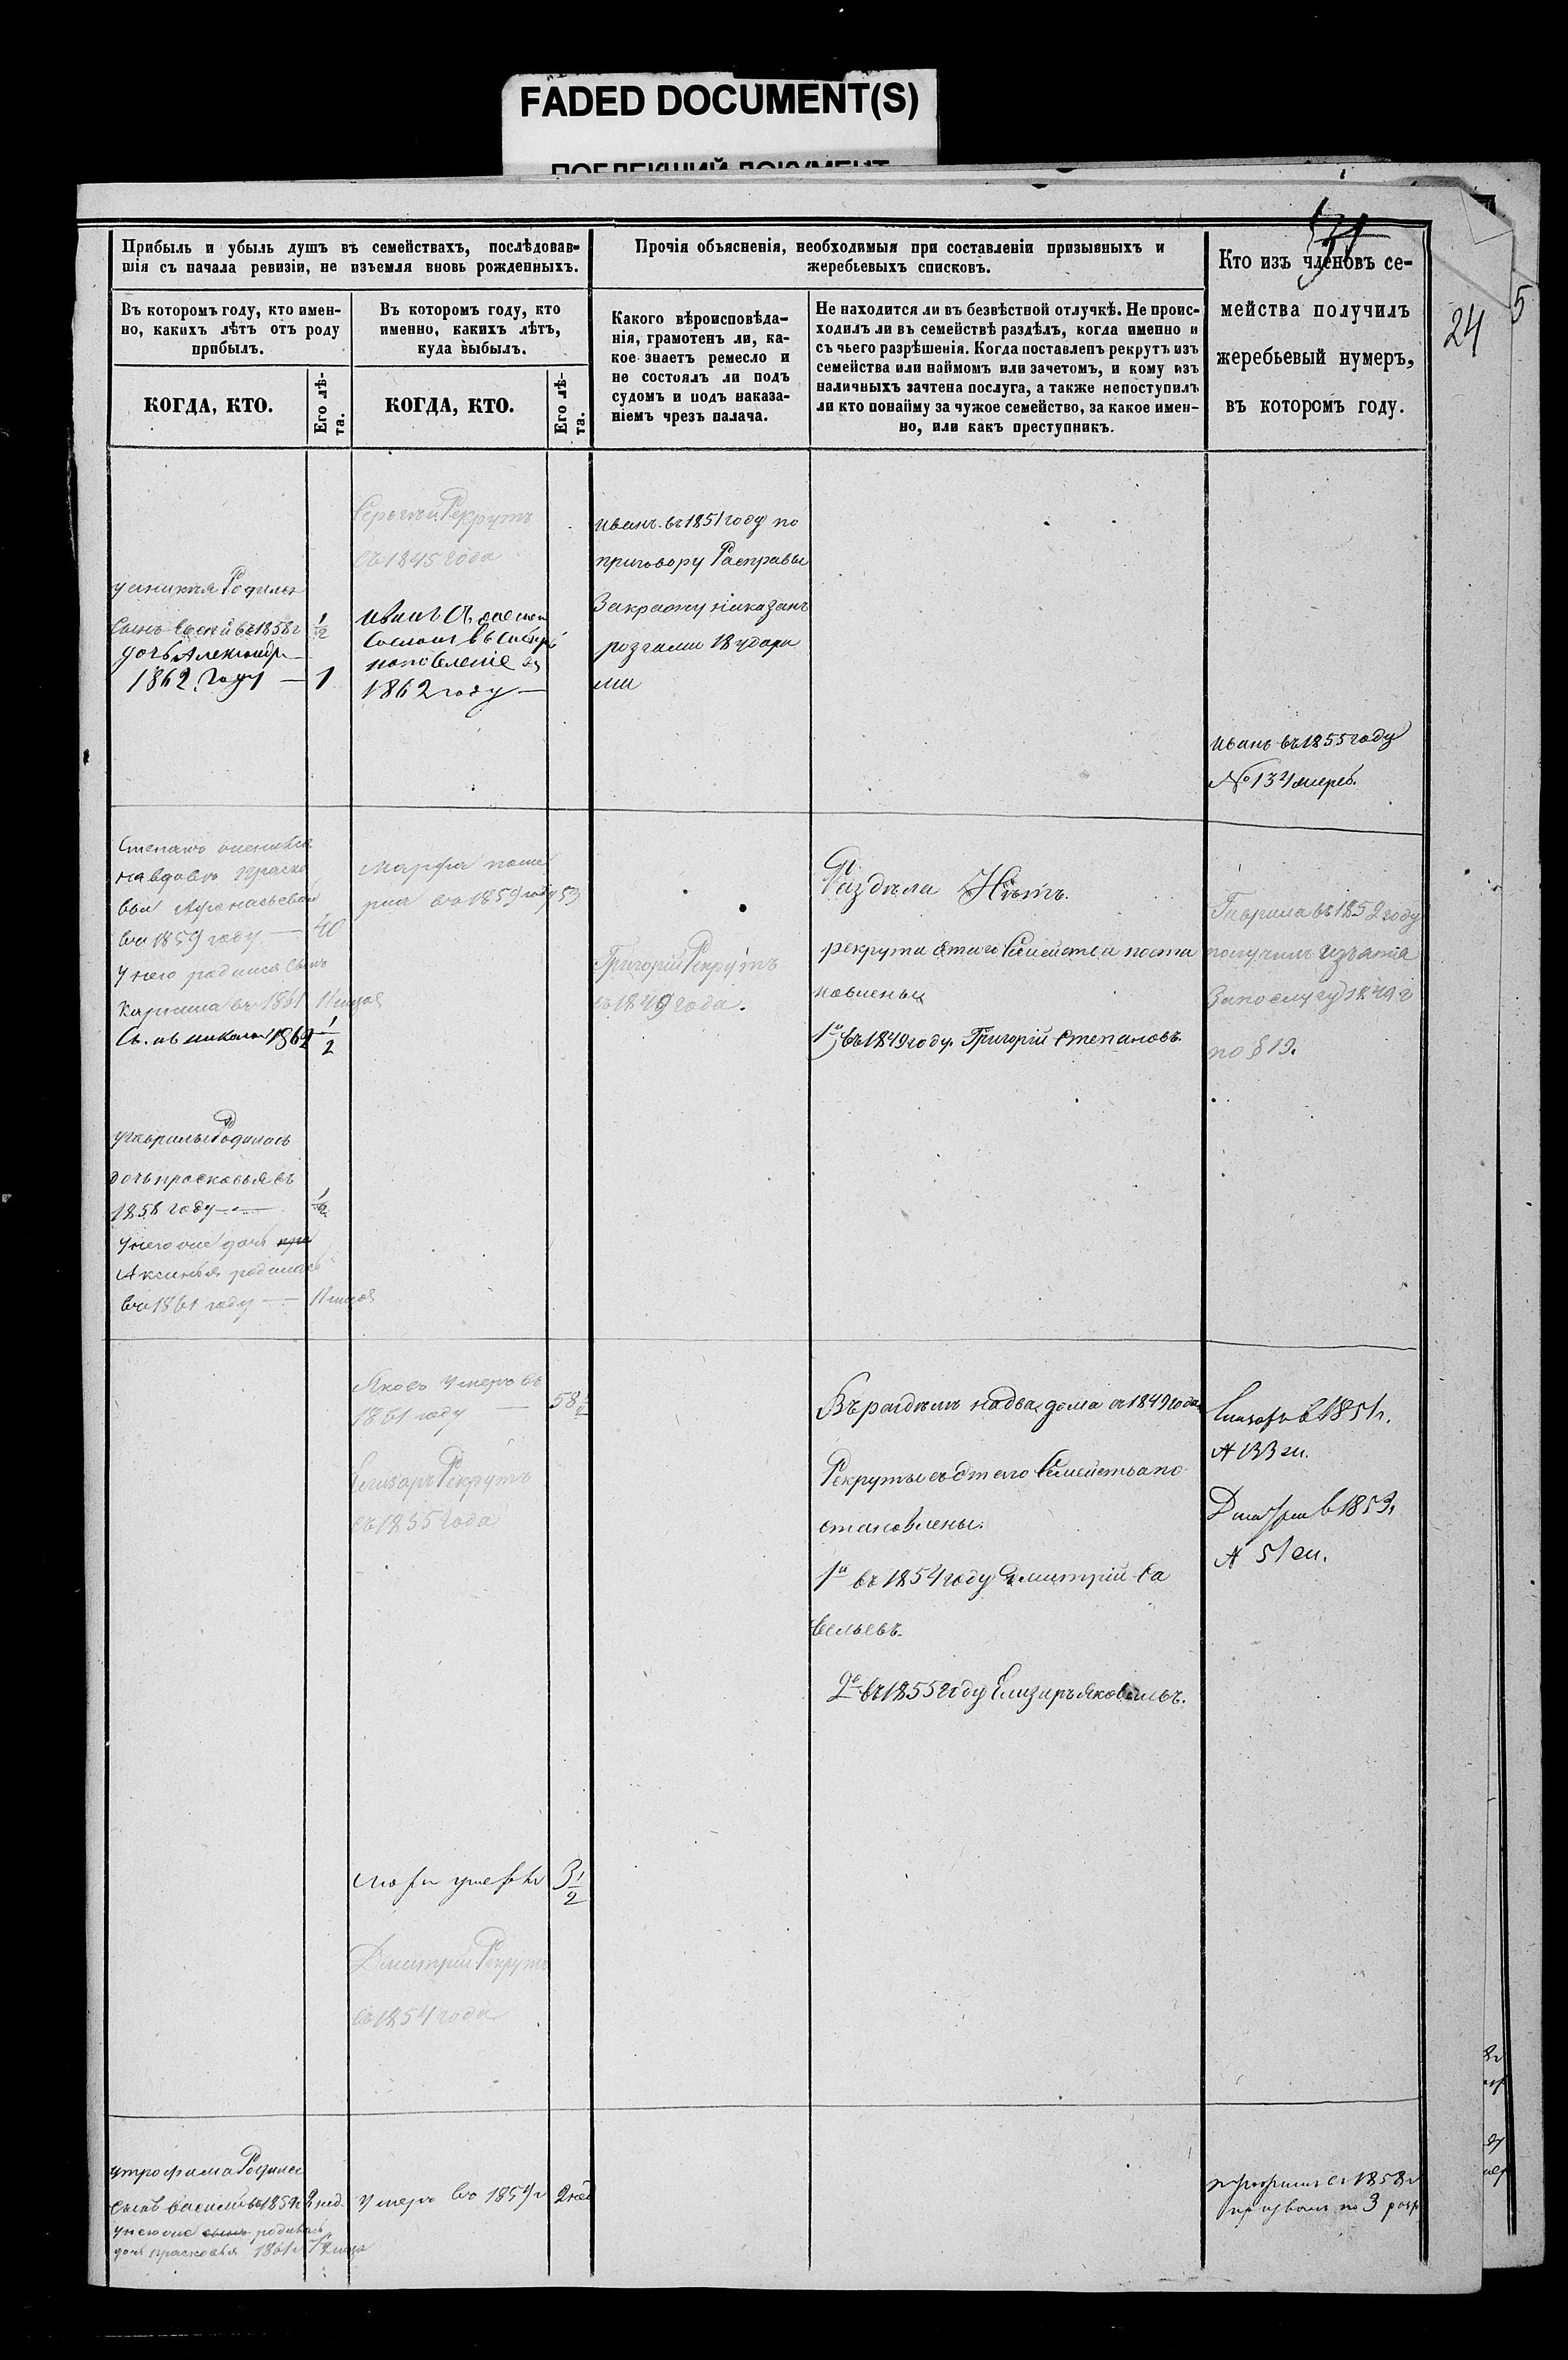 FADED DOCUMENT(S)
131
24
5
Прибыль и убыль душъ въ семействахъ, послѣдовав-
шія съ начала ревизіи, не изъемля вновь рожденныхъ.
Прочія объясненія, необходимыя при составленіи призывныхъ и
жеребьевыхъ списковъ.
Кто изъ членовъ се-
мейства получилъ
жеребьевый нумеръ,
въ которомъ году.
Въ которомъ году, кто имен-
но, какихъ лѣтъ отъ роду
прибылъ.
Въ которомъ году, кто
именно, какихъ лѣтъ,
куда выбылъ.
Какого вѣроисповѣда-
нія, грамотенъ ли, ка-
кое знаетъ ремесло и
не состоялъ ли подъ
судомъ и подъ наказа-
ніемъ чрезъ палача.
Не находится ли въ безвѣстной отлучкѣ. Не проис-
ходилъ ли въ семействѣ раздѣлъ, когда именно и
съ чьего разрѣшенія. Когда поставленъ рекрутъ изъ
семейства или наймомъ или зачетомъ, и кому изъ
наличныхъ зачтена послуга, а также непоступилъ
ли кто понайму за чужое семейство, за какое имен-
но, или какъ преступникъ.
КОГДА, КТО.
Его лѣ-
та.
КОГДА, КТО.
Его лѣ-
та.
Родился
Сынъ въ 1858 г 1/2
дочь Александр
1862 году — 1
Сергѣй Рекрутъ
съ 1845 года
Иванъ
Сосланъ въ Сибирь
на поселеніе въ
1862 году —
Иванъ въ 1851 году по
приговору Расправы
За кражу наказанъ
розгами 18 удара
ми
Иванъ въ 1855 году
№ 134 жереб.
Степанъ женился
на вдовѣ Праско
вьи Афонасьевой
въ 1859 году — 40
У него родился Сынъ
въ 1861
Николай 1862 1/2
Марфа поме
рла въ 1859 году 53
Григорій Рекрутъ
съ 1849 года.
Раздѣла Нѣтъ.
рекрута съ этаго Семейства поста
новлены
1й въ 1849 году. Григорій Степановъ.
Гаврила въ 1852 году
получилъ изъятіе
За послугу 1849 г
по § 19.
у Гаврилы Родилась
дочь прасковья въ
1858 году — 1/2
У него же дочь
Аксинья родилась
въ 1861 году —
Яковъ Умеръ въ
1861 году — 58 1/2
Елизаръ Рекрутъ
съ 1855 года
Въ раздѣлѣ на два дома съ 1849 года
Рекруты съ этаго Семейства по
становлены.
1й въ 1854 году Дмитрій Са
вельевъ.
2й въ 1855 году Елизаръ Яковлевъ.
Елизаръ в 1851 г.
№ 133 ж.
Дмитрій в 1853,
№ 51 ж.
умерла 3 1/2
Дмитрій Рекрутъ
съ 1854 года
у трофима Родился
Сынъ Василій въ 1859 г 2 нед.
у него же родилась
дочь прасковья 1861 г
Умеръ въ 1859 г 2 нед
трофимъ въ 1858 г
призванъ по 3 разр